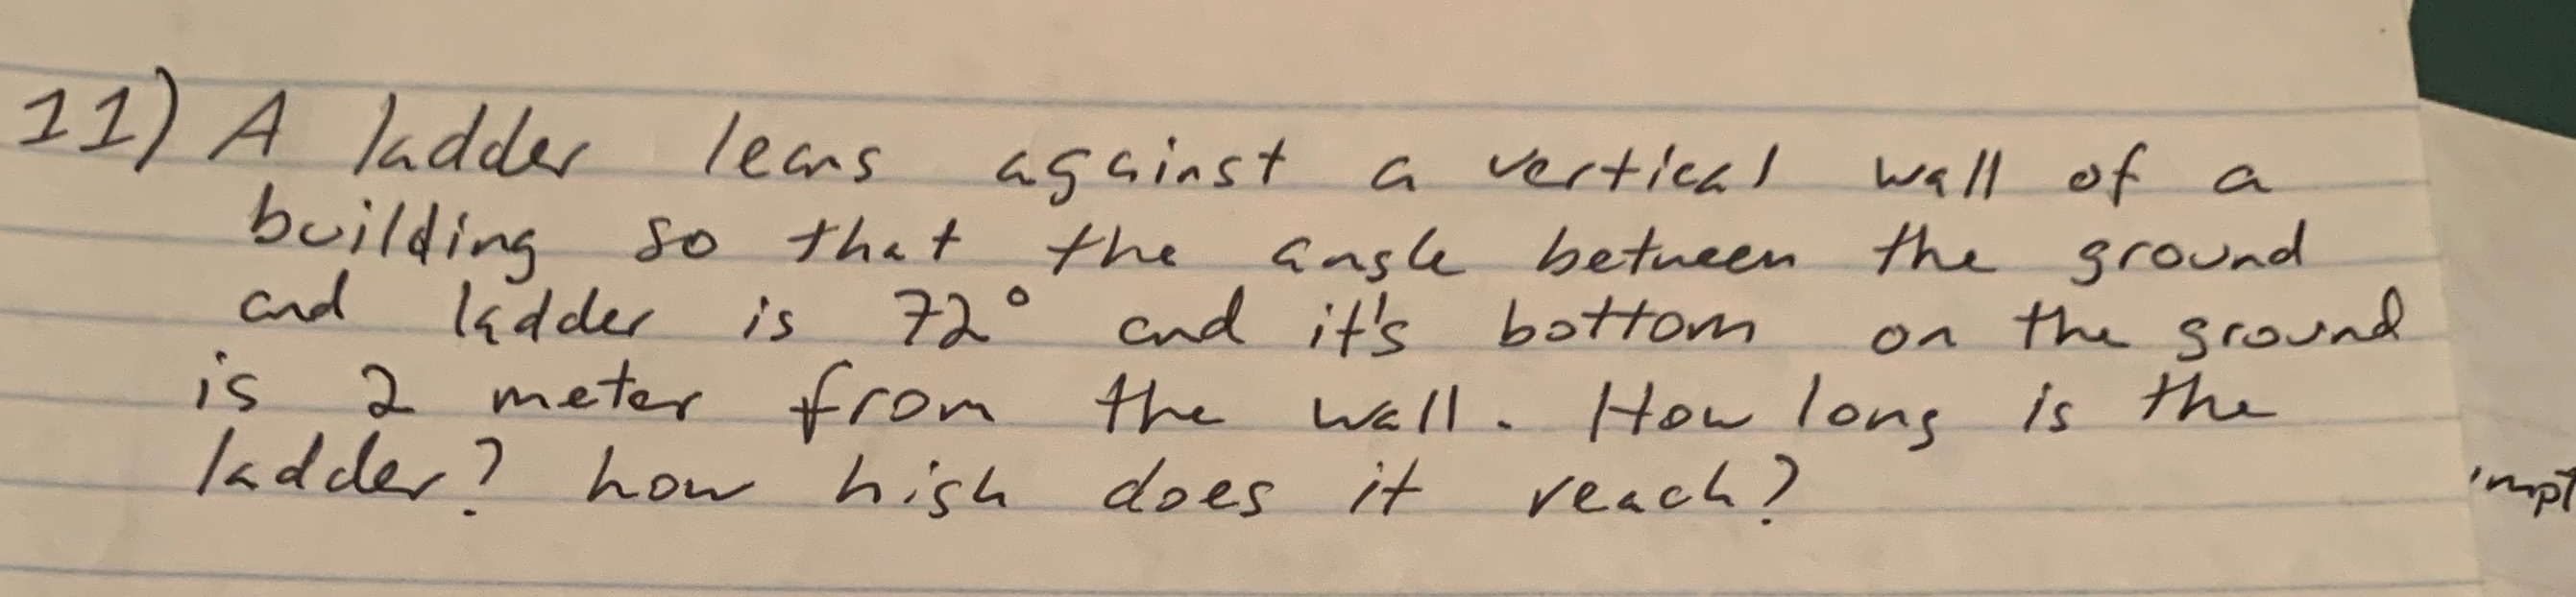 11) A ladder leans against a vertical wall of a
building so that the angle between the ground
and ladder is 72° and it's bottom on the ground
is 2 meter from the wall. How long is the
ladder? how high does it reach?